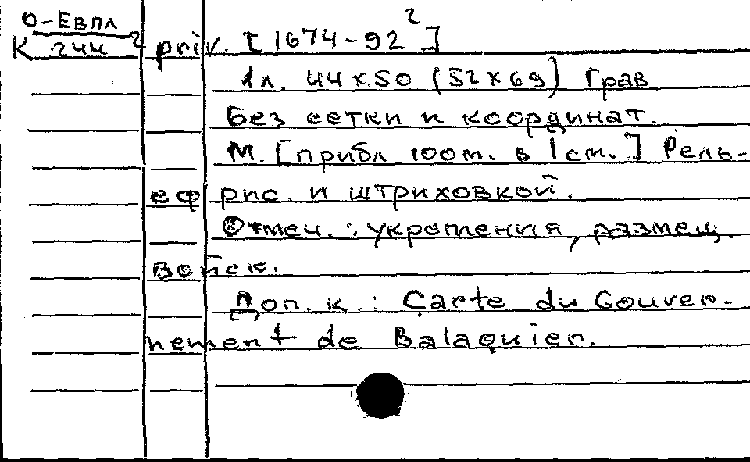 О-Евпл
К 244² priv. [1674-92²]
1л. 44×50 (52×69) Грав
Без сетки и координат.
М. [прибл 100m. в 1 см.] Рель-
еф рис. и штриховкой.
Отмеч.: укрепления, размещ.
войск.
Доп. к: Carte du Gouver-
nement de Balaguier.